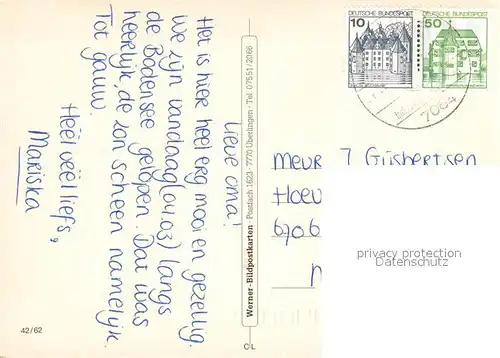 Lieve oma!
Het is hier heel erg mooi en gezellig.
We zijn vandaag (04.03) langs
de Bodensee gelopen. Dat was
heerlijk, de zon scheen namelijk.
Tot gauw.
Heel veel liefs,
Mariska
42/62
Werner-Bildpostkarten · Postfach 1623 · 7770 Überlingen · Tel. 07551/2066
CL
10 DEUTSCHE BUNDESPOST
50 DEUTSCHE BUNDESPOST
Mevr. J. Gijsbertsen
Hoev
6906
privacy protection
Datenschutz